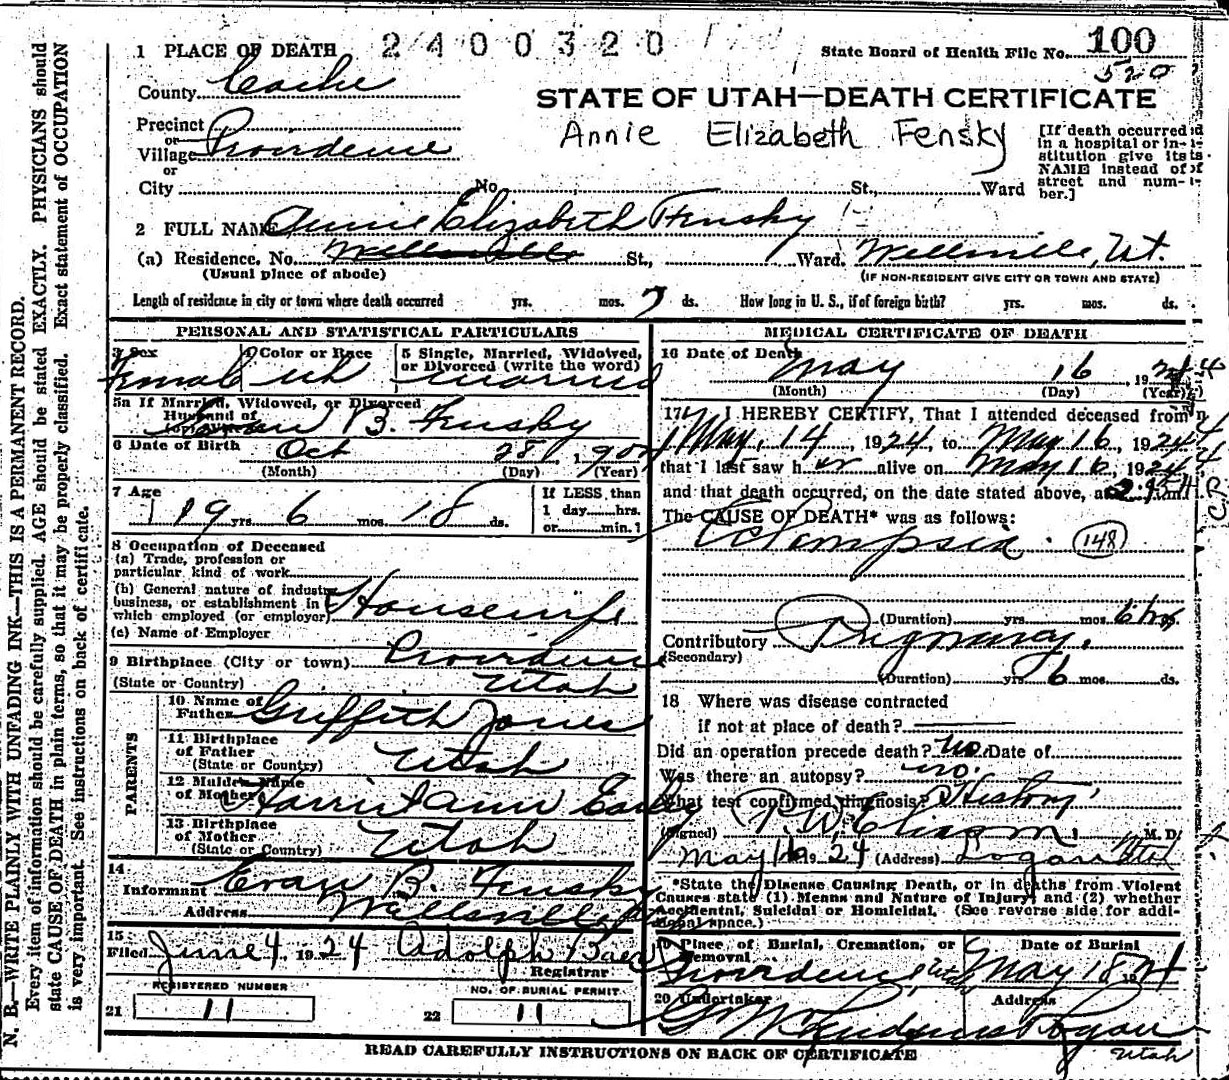 N. B.—WRITE PLAINLY WITH UNFADING INK—THIS IS A PERMANENT RECORD.
Every item of information should be carefully supplied. AGE should be stated EXACTLY. PHYSICIANS should
state CAUSE OF DEATH in plain terms, so that it may be properly classified. Exact statement of OCCUPATION
is very important. See instructions on back of certificate.
1 PLACE OF DEATH 2400320 State Board of Health File No. 100
520
County Cache
STATE OF UTAH—DEATH CERTIFICATE
Annie Elizabeth Fensky
Precinct
or
Village Providence
or
City No. St., Ward
[If death occurred
in a hospital or in-
stitution give its
NAME instead of
street and num-
ber.]
2 FULL NAME Annie Elizabeth Fensky
(a) Residence, No. Wellsville St., Ward. Wellsville, Ut.
(Usual place of abode) (IF NON-RESIDENT GIVE CITY OR TOWN AND STATE)
Length of residence in city or town where death occurred yrs. mos. 7 ds. How long in U. S., if of foreign birth? yrs. mos. ds.
PERSONAL AND STATISTICAL PARTICULARS
3 Sex 4 Color or Race 5 Single, Married, Widowed,
or Divorced (write the word)
Female wh married
5a If Married, Widowed, or Divorced
Husband of
B. Fensky
6 Date of Birth Oct 28, 190
(Month) (Day) (Year)
7 Age 19 yrs. 6 mos. 18 ds.
If LESS than
1 day hrs.
or min.
8 Occupation of Deceased
(a) Trade, profession or
particular kind of work
(b) General nature of industry
business, or establishment in
which employed (or employer) Housewife
(c) Name of Employer
9 Birthplace (City or town) Providence
(State or Country) Utah
PARENTS
10 Name of
Father Griffith Jones
11 Birthplace
of Father
(State or Country) Utah
12 Maiden Name
of Mother Harriet Ann
13 Birthplace
of Mother
(State or Country) Utah
14
Informant Evan B. Fensky
Address Wellsville
15
Filed June 4, 1924 Adolph Baer
Registrar
REGISTERED NUMBER NO. OF BURIAL PERMIT
21 11 22 11
MEDICAL CERTIFICATE OF DEATH
16 Date of Death May 16, 1924
(Month) (Day) (Year)
17 I HEREBY CERTIFY, That I attended deceased from
May, 14, 1924, to May 16, 1924
that I last saw her alive on May 16, 1924
and that death occurred, on the date stated above, at
The CAUSE OF DEATH* was as follows:
Eclampsia. 148
(Duration) yrs. mos. 6 hrs
Contributory Pregnancy.
(Secondary)
(Duration) yrs. 6 mos. ds.
18 Where was disease contracted
if not at place of death?
Did an operation precede death? no Date of
Was there an autopsy? no.
What test confirmed diagnosis? History
(Signed) M. D.
May 16 1924 (Address) Logan Utah
*State the Disease Causing Death, or in deaths from Violent
Causes state (1) Means and Nature of Injury; and (2) whether
Accidental, Suicidal or Homicidal. (See reverse side for addi-
tional space.)
19 Place of Burial, Cremation, or
Removal Date of Burial
Providence, Utah, May 18 1924
20 Undertaker Address
Logan
Utah
READ CAREFULLY INSTRUCTIONS ON BACK OF CERTIFICATE